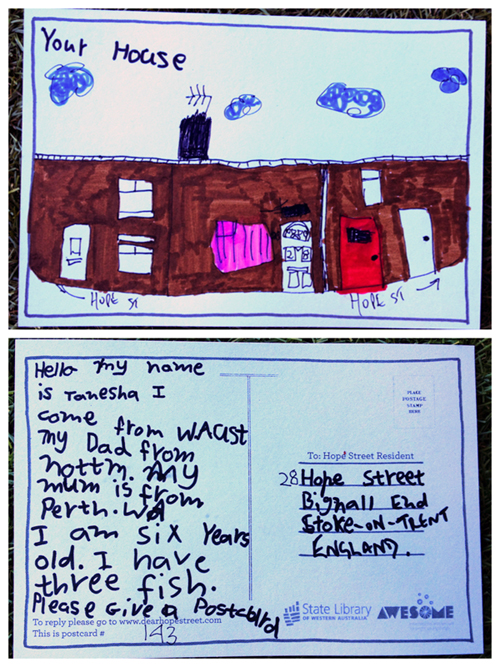 Your House
28
HOPE ST
HOPE ST
Hello my name
is Tanesha I
come from WAust
my Dad from
nottm. My
mum is from
Perth. WA
I am six Years
old. I have
three fish.
Please Give a Postcard
To reply please go to www.dearhopestreet.com
This is postcard #
143
PLACE
POSTAGE
STAMP
HERE
To: Hope Street Resident
28 Hope Street
Bignall End
Stoke-on-TRENT
ENGLAND.
State Library
OF WESTERN AUSTRALIA
AWESOME